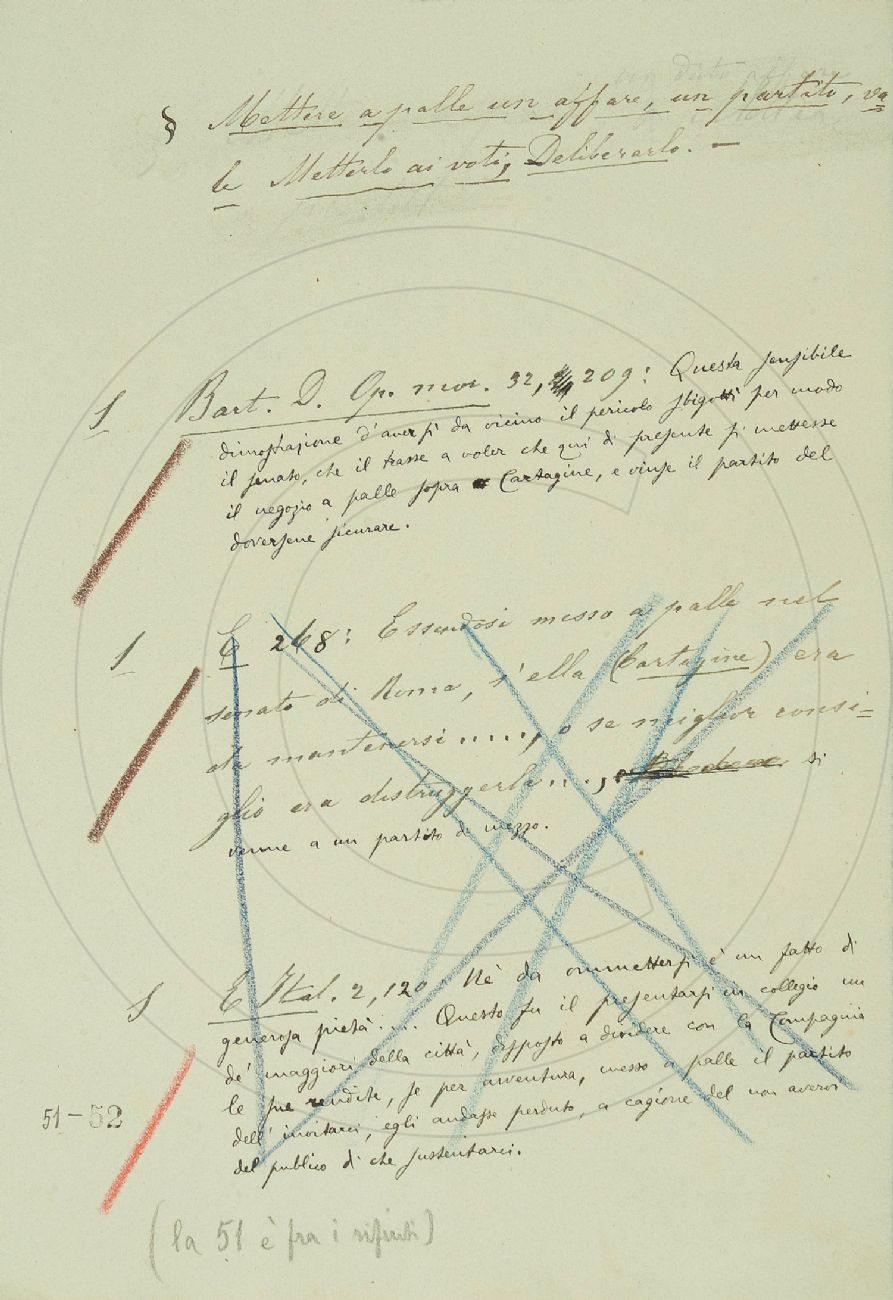 § Mettere a palle un affare, un partito, va
le Metterlo ai voti, Deliberarlo. —
§ Bart. D. Op. mor. 32, 209: Questa sensibile
dimostrazione d'aversi da vicino il pericolo sbigottì per modo
il senato, che il trasse a voler che quì di presente si mettesse
il negozio a palle sopra Cartagine, e vinse il partito del
doversene sicurare.
§ E 268: Essendosi messo a palle nel
senato di Roma, s'ella (Cartagine) era
da mantenersi ....., o se miglior consi=
glio era distruggerla ..., si
venne a un partito di mezzo.
§ E Ital. 2, 120: Nè da ommettersi è un fatto di
generosa pietà .... Questo fu il presentarsi in collegio un
de' maggiori della città, disposto a dividere con la Compagnia
le sue rendite, se per avventura, messo a palle il partito
51-52
dell' invitarci, egli andasse perduto, a cagione del non avervi
del publico di che sustentarci.
(la 51 è fra i rifiuti)